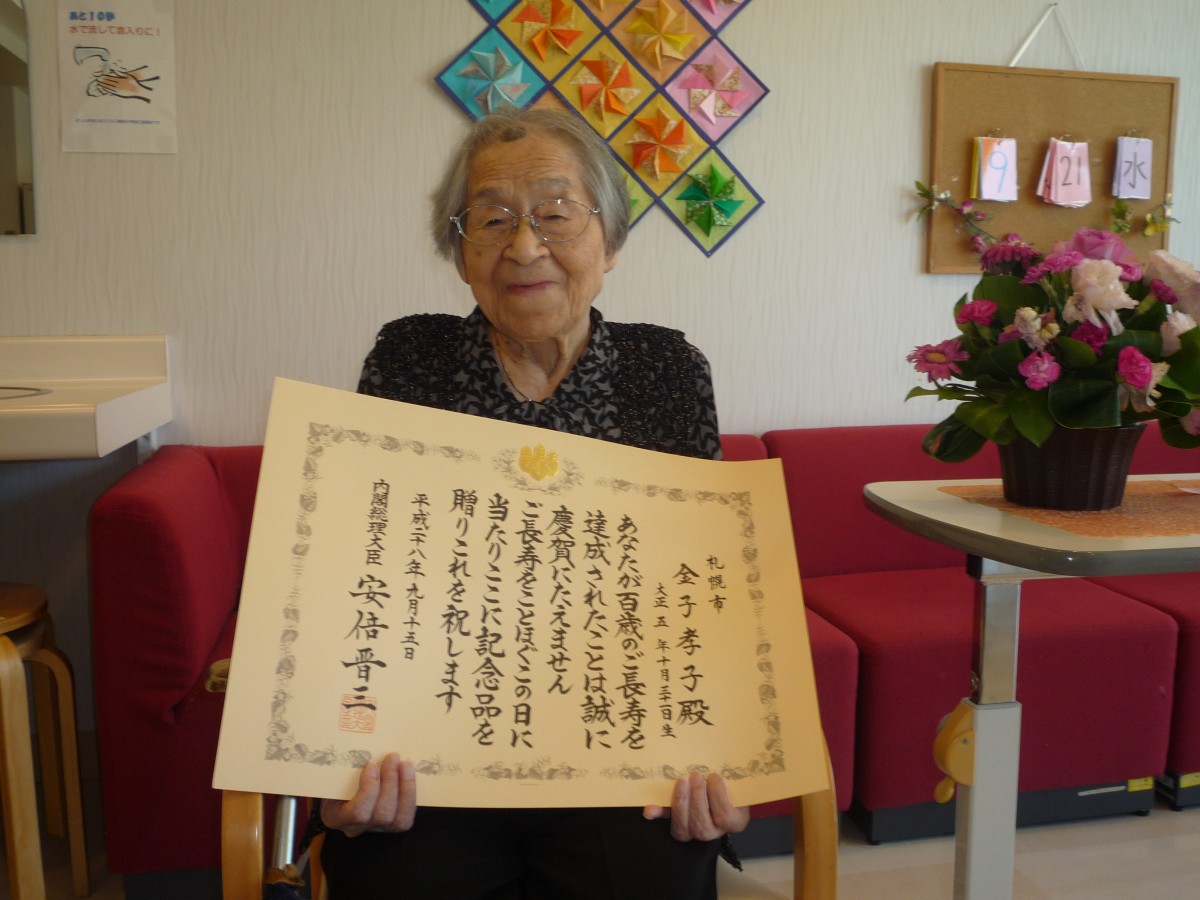 あと10秒
水で流して念入りに!
9
21
水
札幌市
金子孝子殿
大正五年十月三十一日生
あなたが百歳のご長寿を
達成されたことは誠に
慶賀にたえません
ご長寿をことほぐこの日に
当たりここに記念品を
贈りこれを祝します
平成二十八年九月十五日
内閣総理大臣 安倍晋三